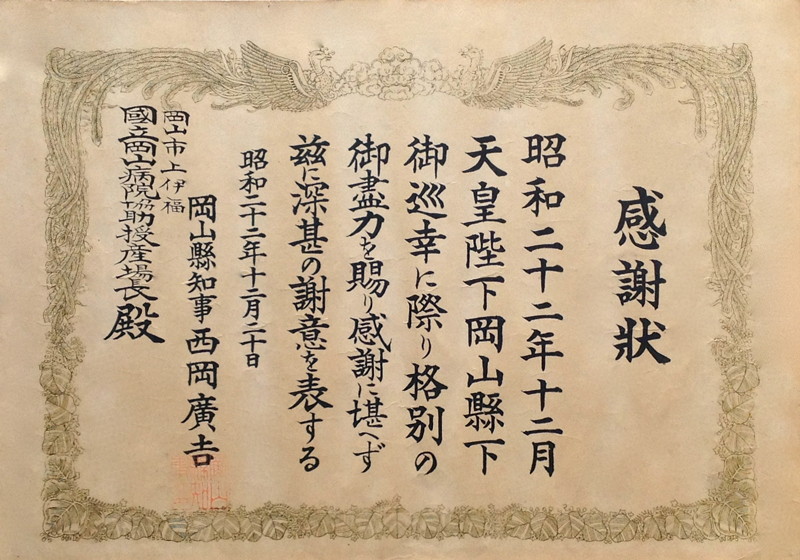 感謝狀
昭和二十二年十二月
天皇陛下岡山縣下
御巡幸に際り格別の
御盡力を賜り感謝に堪へず
玆に深甚の謝意を表する
昭和二十二年十二月二十日
岡山縣知事 西岡廣吉
岡山市上伊福
國立岡山病院協助授產場長殿